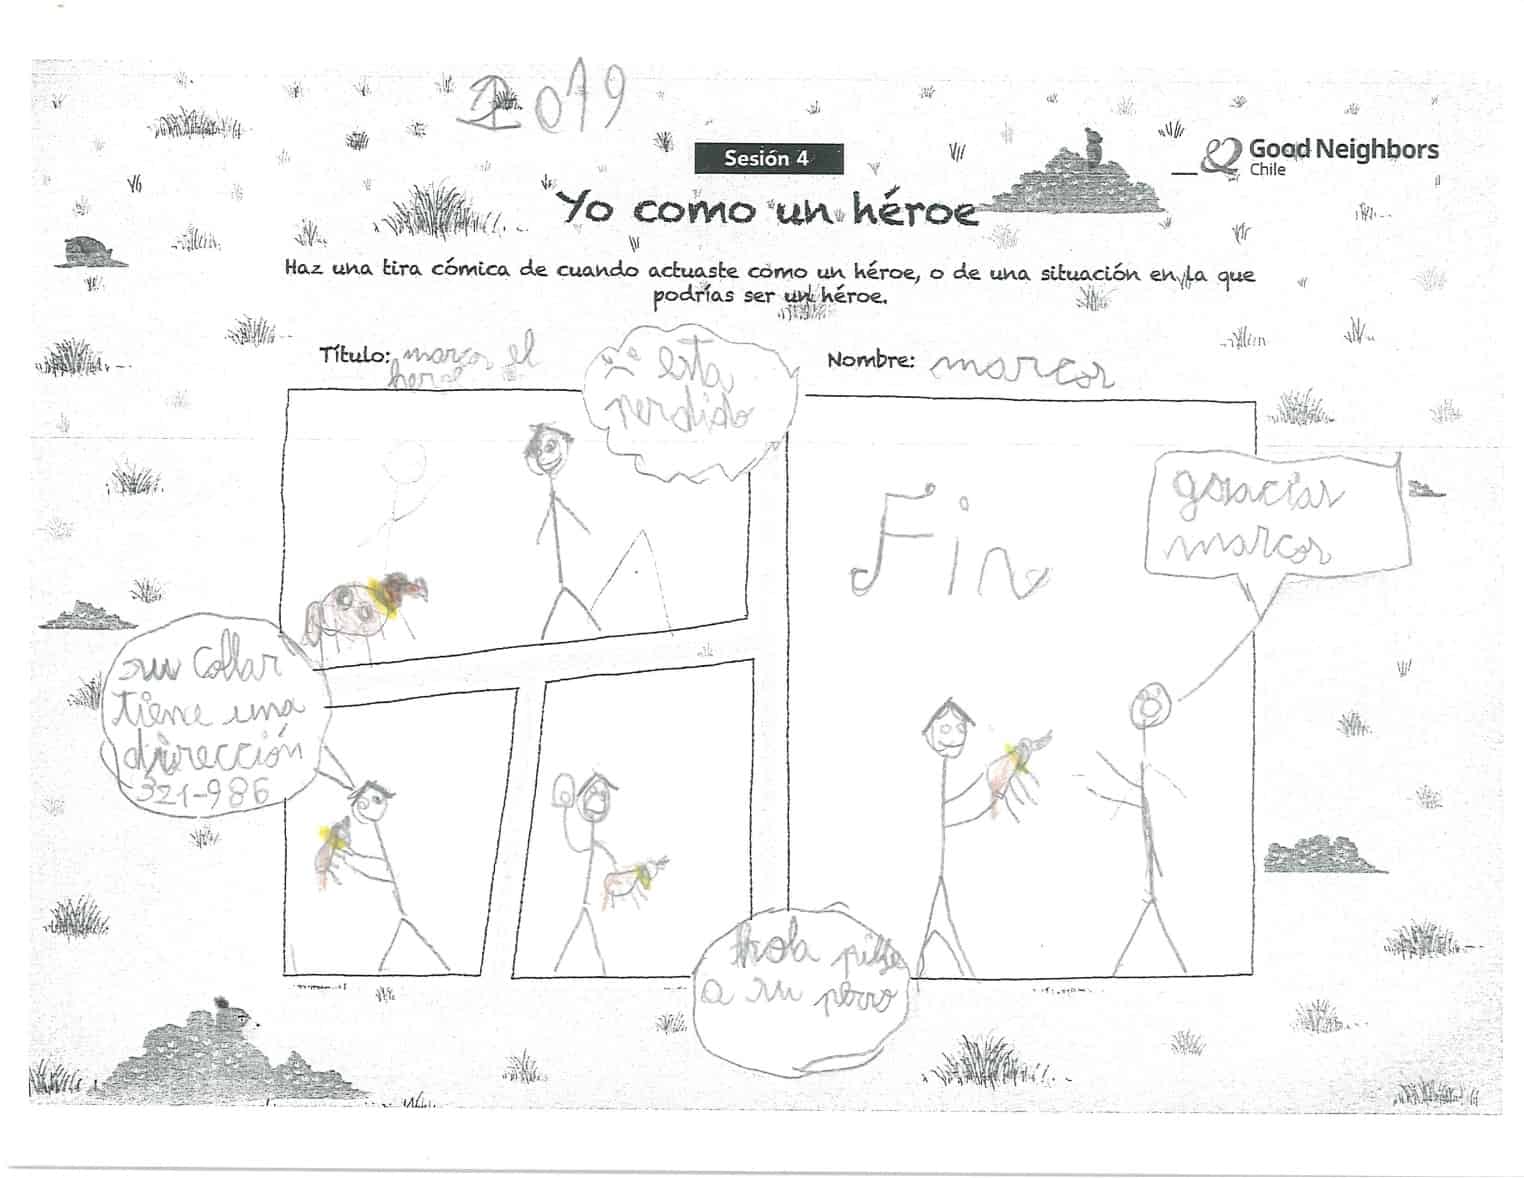 2019
Sesión 4
Good Neighbors
Chile
Yo como un héroe
Haz una tira cómica de cuando actuaste como un héroe, o de una situación en la que
podrías ser un héroe.
Título: marcos el
heroe
Nombre: marcos
esta
perdido
su collar
tiene una
dirección
321-986
hola pille
a su perro
Fin
gracias
marcos